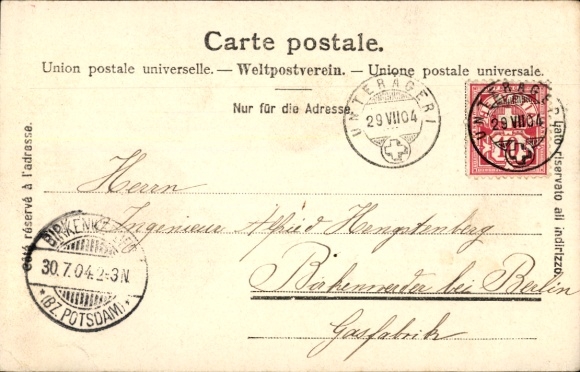 Carte postale.
Union postale universelle. — Weltpostverein. — Unione postale universale.
Nur für die Adresse.
Côté réservé à l'adresse.
lato riservato all indirizzo.
UNTERÄGERI
29 VII 04
UNTERÄGERI
29 VII 04
10
Herrn
Ingenieur Alfred Hengstenberg
Birkenwerder bei Berlin
Gasfabrik
BIRKENWERDER
30.7.04.2-3N.
* (BZ. POTSDAM) *